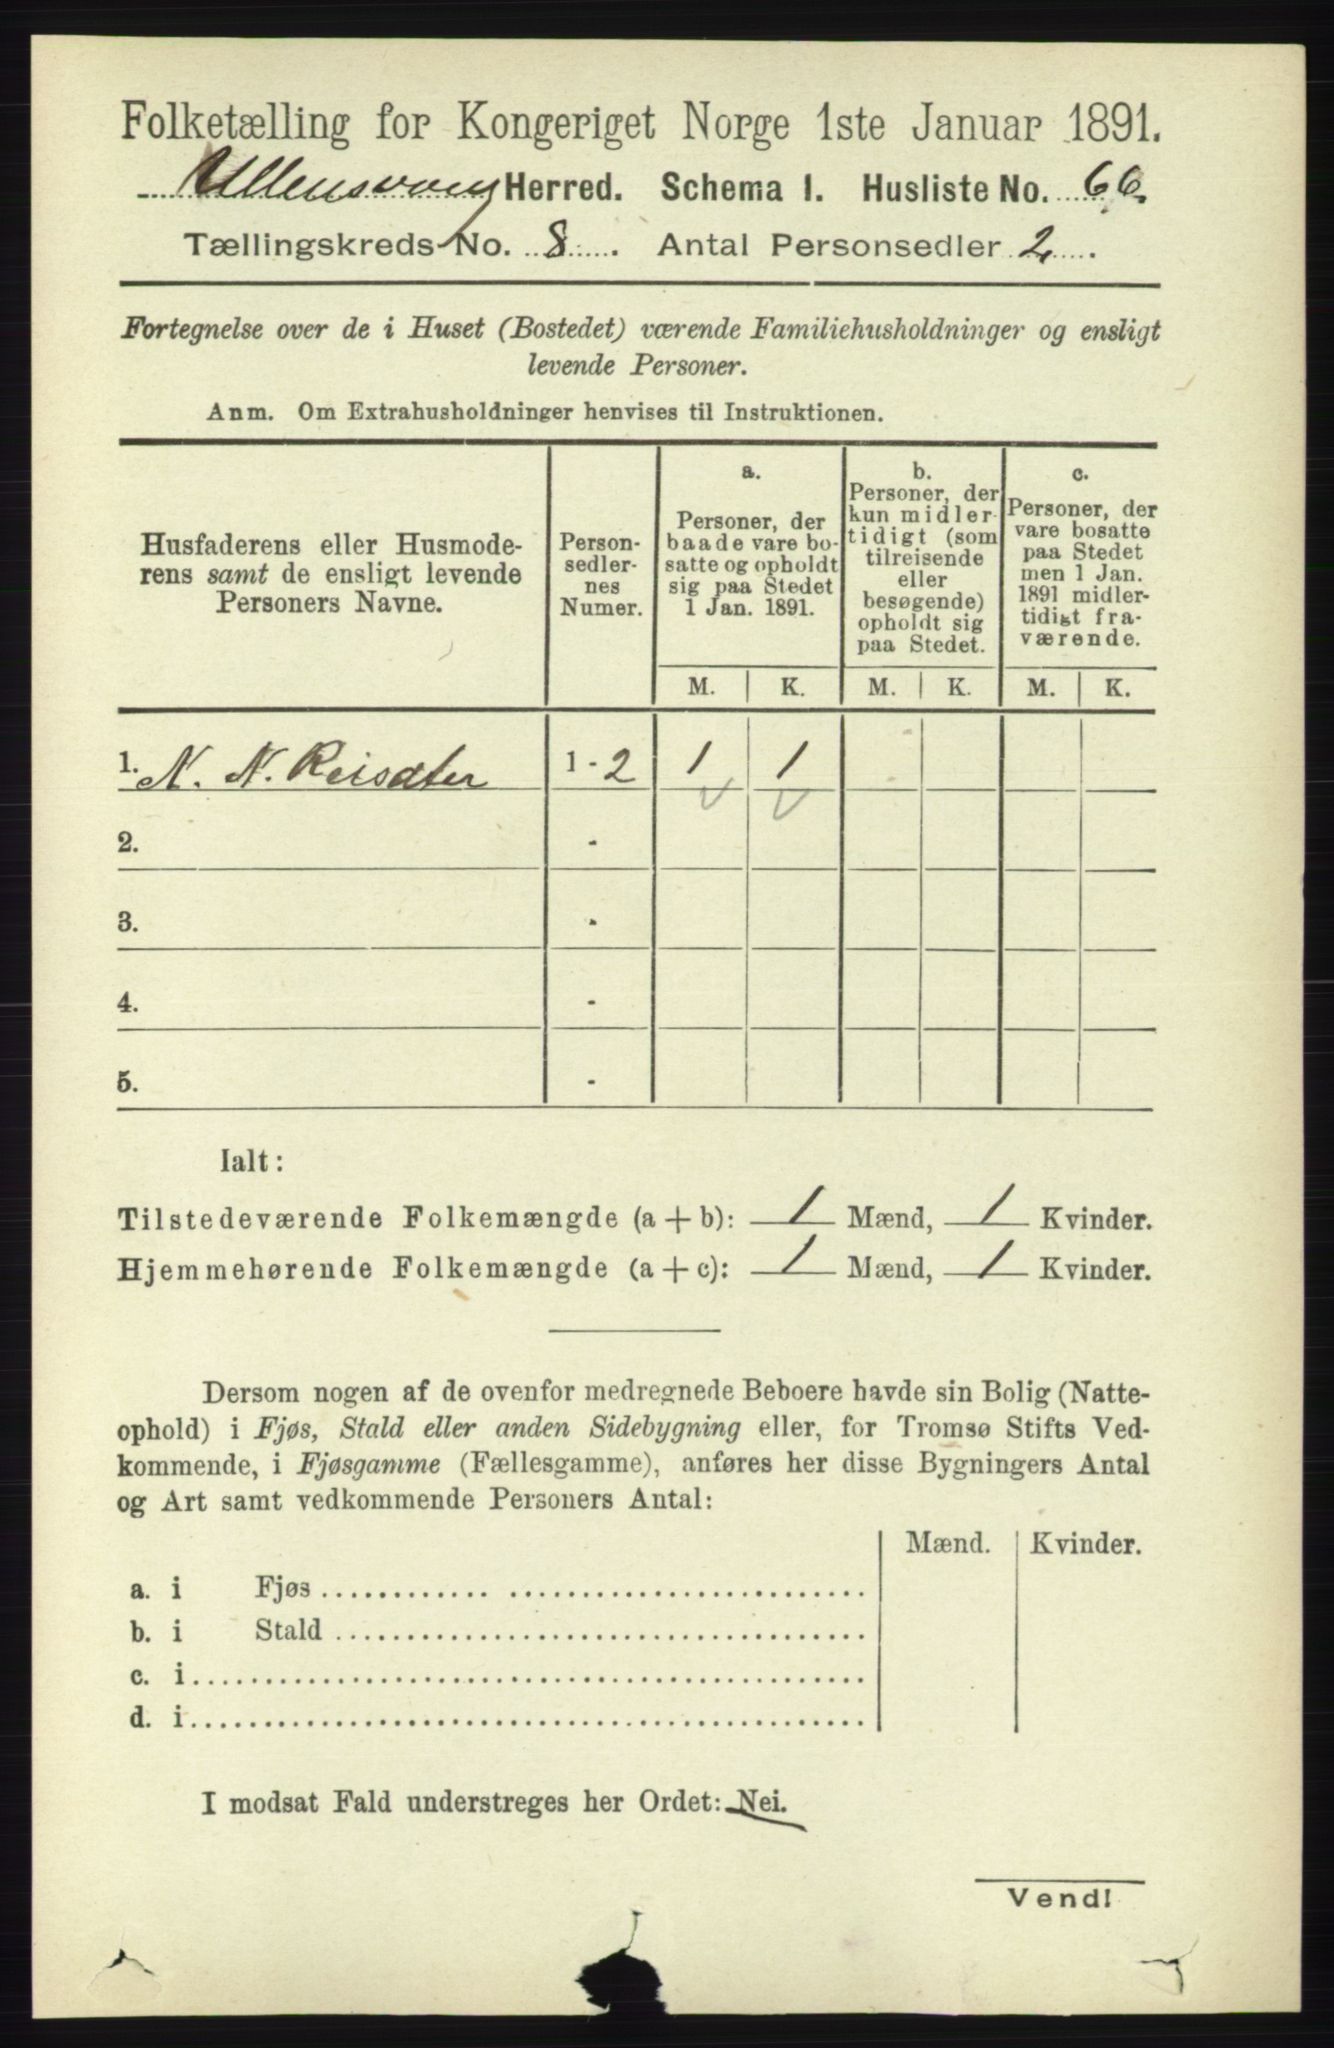 Folketælling for Kongeriget Norge 1ste Januar 1891.
Ullensvang Herred. Schema 1. Husliste No. 66.
Tællingskreds No. 8. Antal Personsedler 2.
Fortegnelse over de i Huset (Bostedet) værende Familiehusholdninger og ensligt
levende Personer.
Anm. Om Extrahusholdninger henvises til Instruktionen.
Husfaderens eller Husmode-
rens samt de ensligt levende
Personers Navne.
Person-
sedler-
nes
Numer.
a.
Personer, der
baade vare bo-
satte og opholdt
sig paa Stedet
1 Jan. 1891.
b.
Personer, der
kun midler-
tidigt (som
tilreisende
eller
besøgende)
opholdt sig
paa Stedet.
c.
Personer, der
vare bosatte
paa Stedet
men 1 Jan.
1891 midler-
tidigt fra-
værende.
M. K. M. K. M. K.
1. N. N. Reisæter 1 - 2 1 1
2. -
3. -
4. -
5. -
Ialt:
Tilstedeværende Folkemængde (a + b): 1 Mænd, 1 Kvinder.
Hjemmehørende Folkemængde (a + c): 1 Mænd, 1 Kvinder.
Dersom nogen af de ovenfor medregnede Beboere havde sin Bolig (Natte-
ophold) i Fjøs, Stald eller anden Sidebygning eller, for Tromsø Stifts Ved-
kommende, i Fjøsgamme (Fællesgamme), anføres her disse Bygningers Antal
og Art samt vedkommende Personers Antal:
Mænd. Kvinder.
a. i Fjøs
b. i Stald
c. i
d. i
I modsat Fald understreges her Ordet: Nei.
Vend!